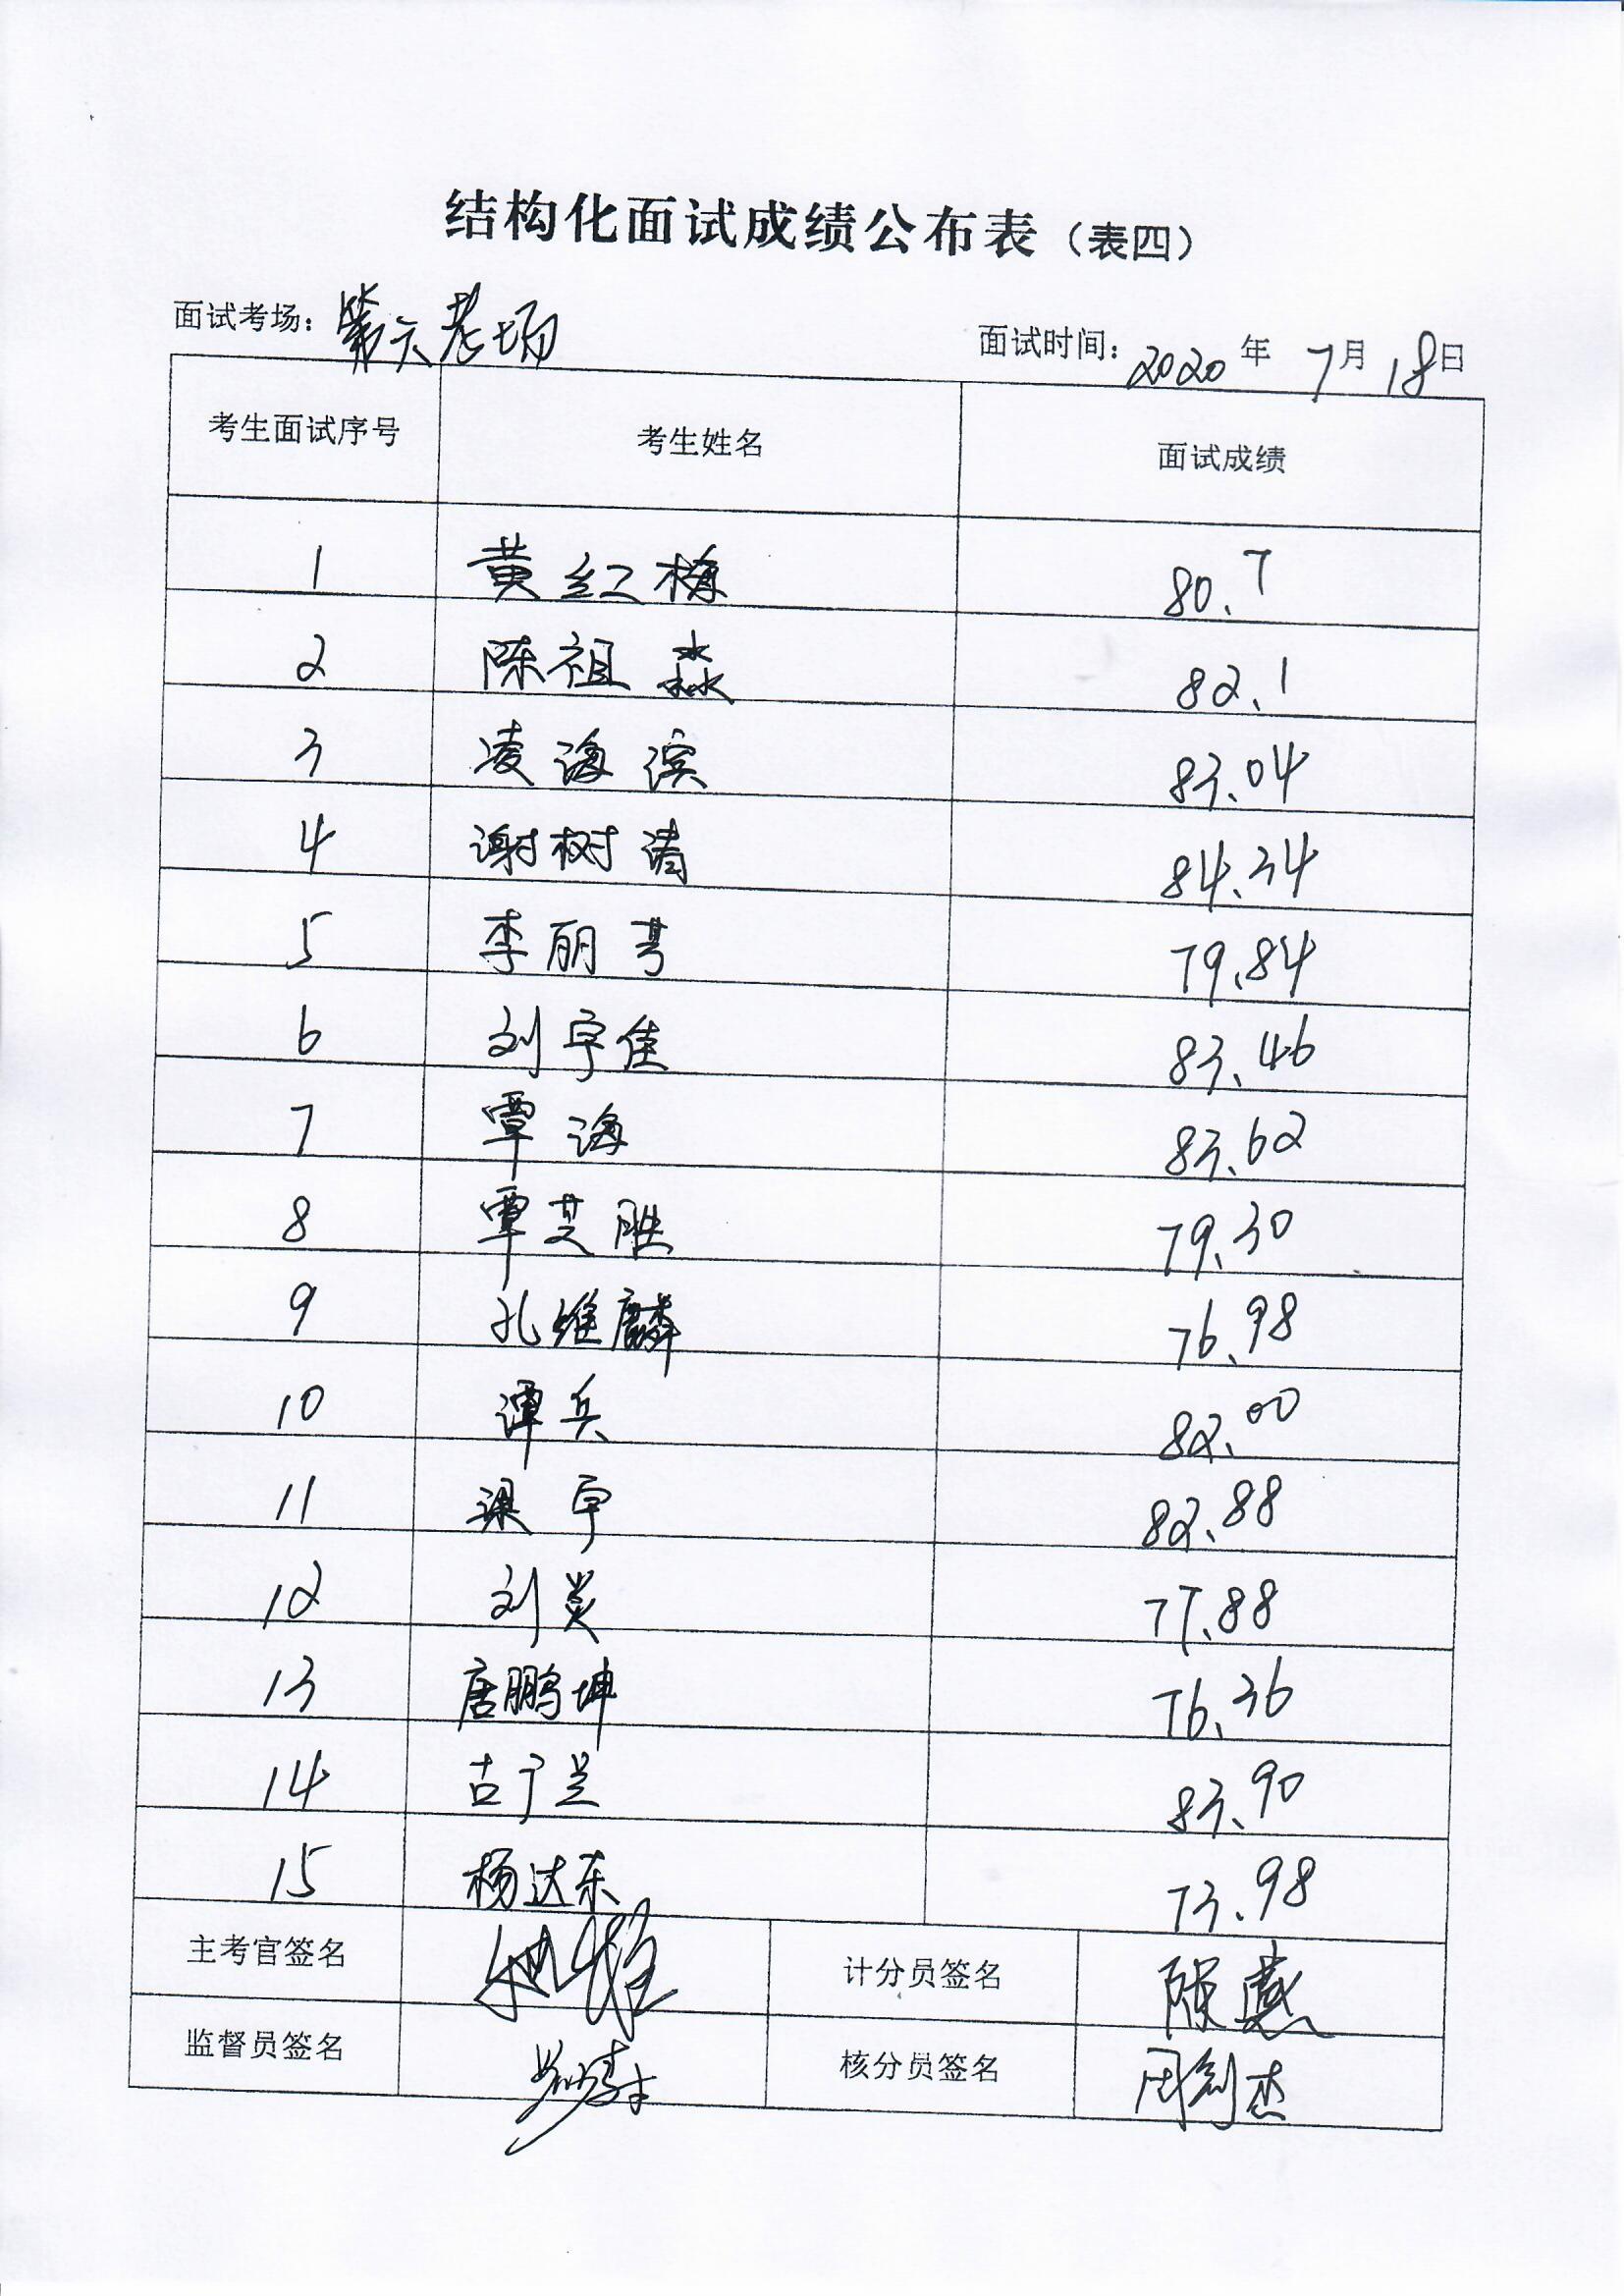 结构化面试成绩公布表（表四）
面试考场：第六考场 面试时间：2020年 7月18日
考生面试序号 考生姓名 面试成绩
1 黄红梅 80.7
2 陈祖淼 82.1
3 凌海滨 83.04
4 谢树清 84.34
5 李丽 79.84
6 刘宇佳 83.46
7 覃海 83.62
8 覃艾胜 79.30
9 孔维麟 76.98
10 谭兵 82.00
11 梁宇 82.88
12 刘炎 77.88
13 唐鹏坤 76.36
14 古宁兰 83.90
15 杨达东 73.98
主考官签名 计分员签名 陈
监督员签名 核分员签名 周剑杰